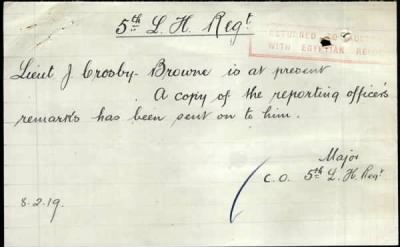 5th L. H. Regt.
RETURNED TO AUST
WITH EGYPTIAN RECO
Lieut J. Crosby-Browne is at present
A copy of the reporting officer's
remarks has been sent on to him.
Major
C.O. 5th L. H. Regt
8.2.19.